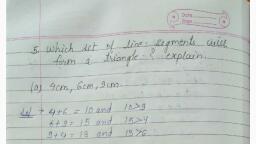 Date
Page
5. Which set of line-segments will
form a triangle? explain.
(a) 4cm, 6cm, 9cm
Sol → 4+6 = 10 and 10>9
6+9 = 15 and 15>4
9+4 = 13 and 13>6